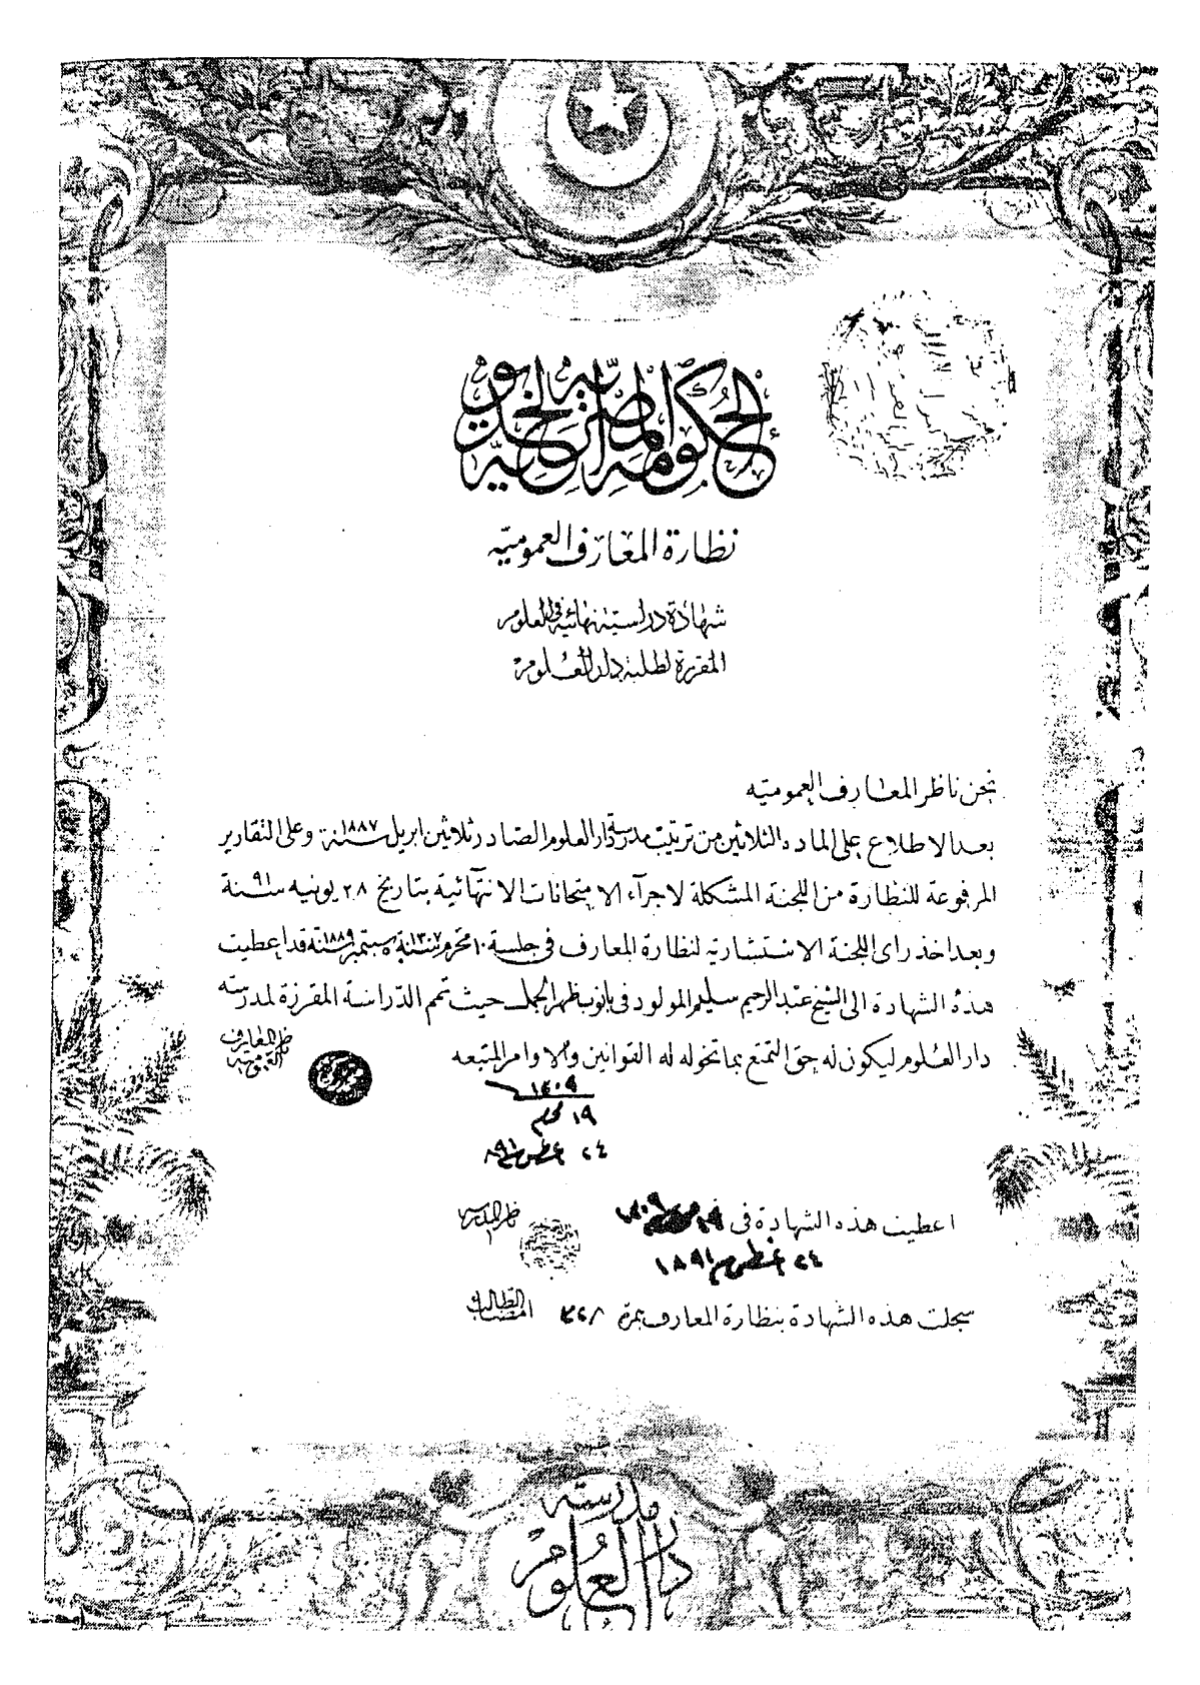 الحكومة المصرية الخديوية
نظارة المعارف العموميه
شهادة دراسية نهائية فى العلوم
المقررة لطلبة دار العلوم
نحن ناظر المعارف العموميه
بعد الاطلاع على المادة الثلاثين من ترتيب مدرسة دار العلوم الصادر ثلاثين ابريل سنة ١٨٨٧ وعلى التقارير
المرفوعة للنظارة من اللجنة المشكلة لاجرآء الامتحانات الانتهائية بتاريخ ٢٨ يونيه سنة ٩١
وبعد اخذ راى اللجنة الاستشاريه لنظارة المعارف فى جلسة ١٠ محرم سنة ١٣٠٧ ٥ سبتمبر سنة ١٨٨٩ قد اعطيت
هذه الشهادة الى الشيخ عبد الرحيم سليم المولود فى بانوب ظهر الجمل حيث تمم الدراسة المقررة لمدرسة
دار العلوم ليكون له حق التمتع بما تخوله له القوانين والاوامر المتبعه
ناظر المعارف
العموميه
١٣٠٩
١٩ محرم
٢٤ اغسطس ٨٩١
اعطيت هذه الشهادة فى ١٩ محرم ١٣٠٩
ناظر المدرسه
٢٤ اغسطس ١٨٩١
سجلت هذه الشهادة بنظارة المعارف بنمرة
امضا الطالب
مدرسة
دار العلوم